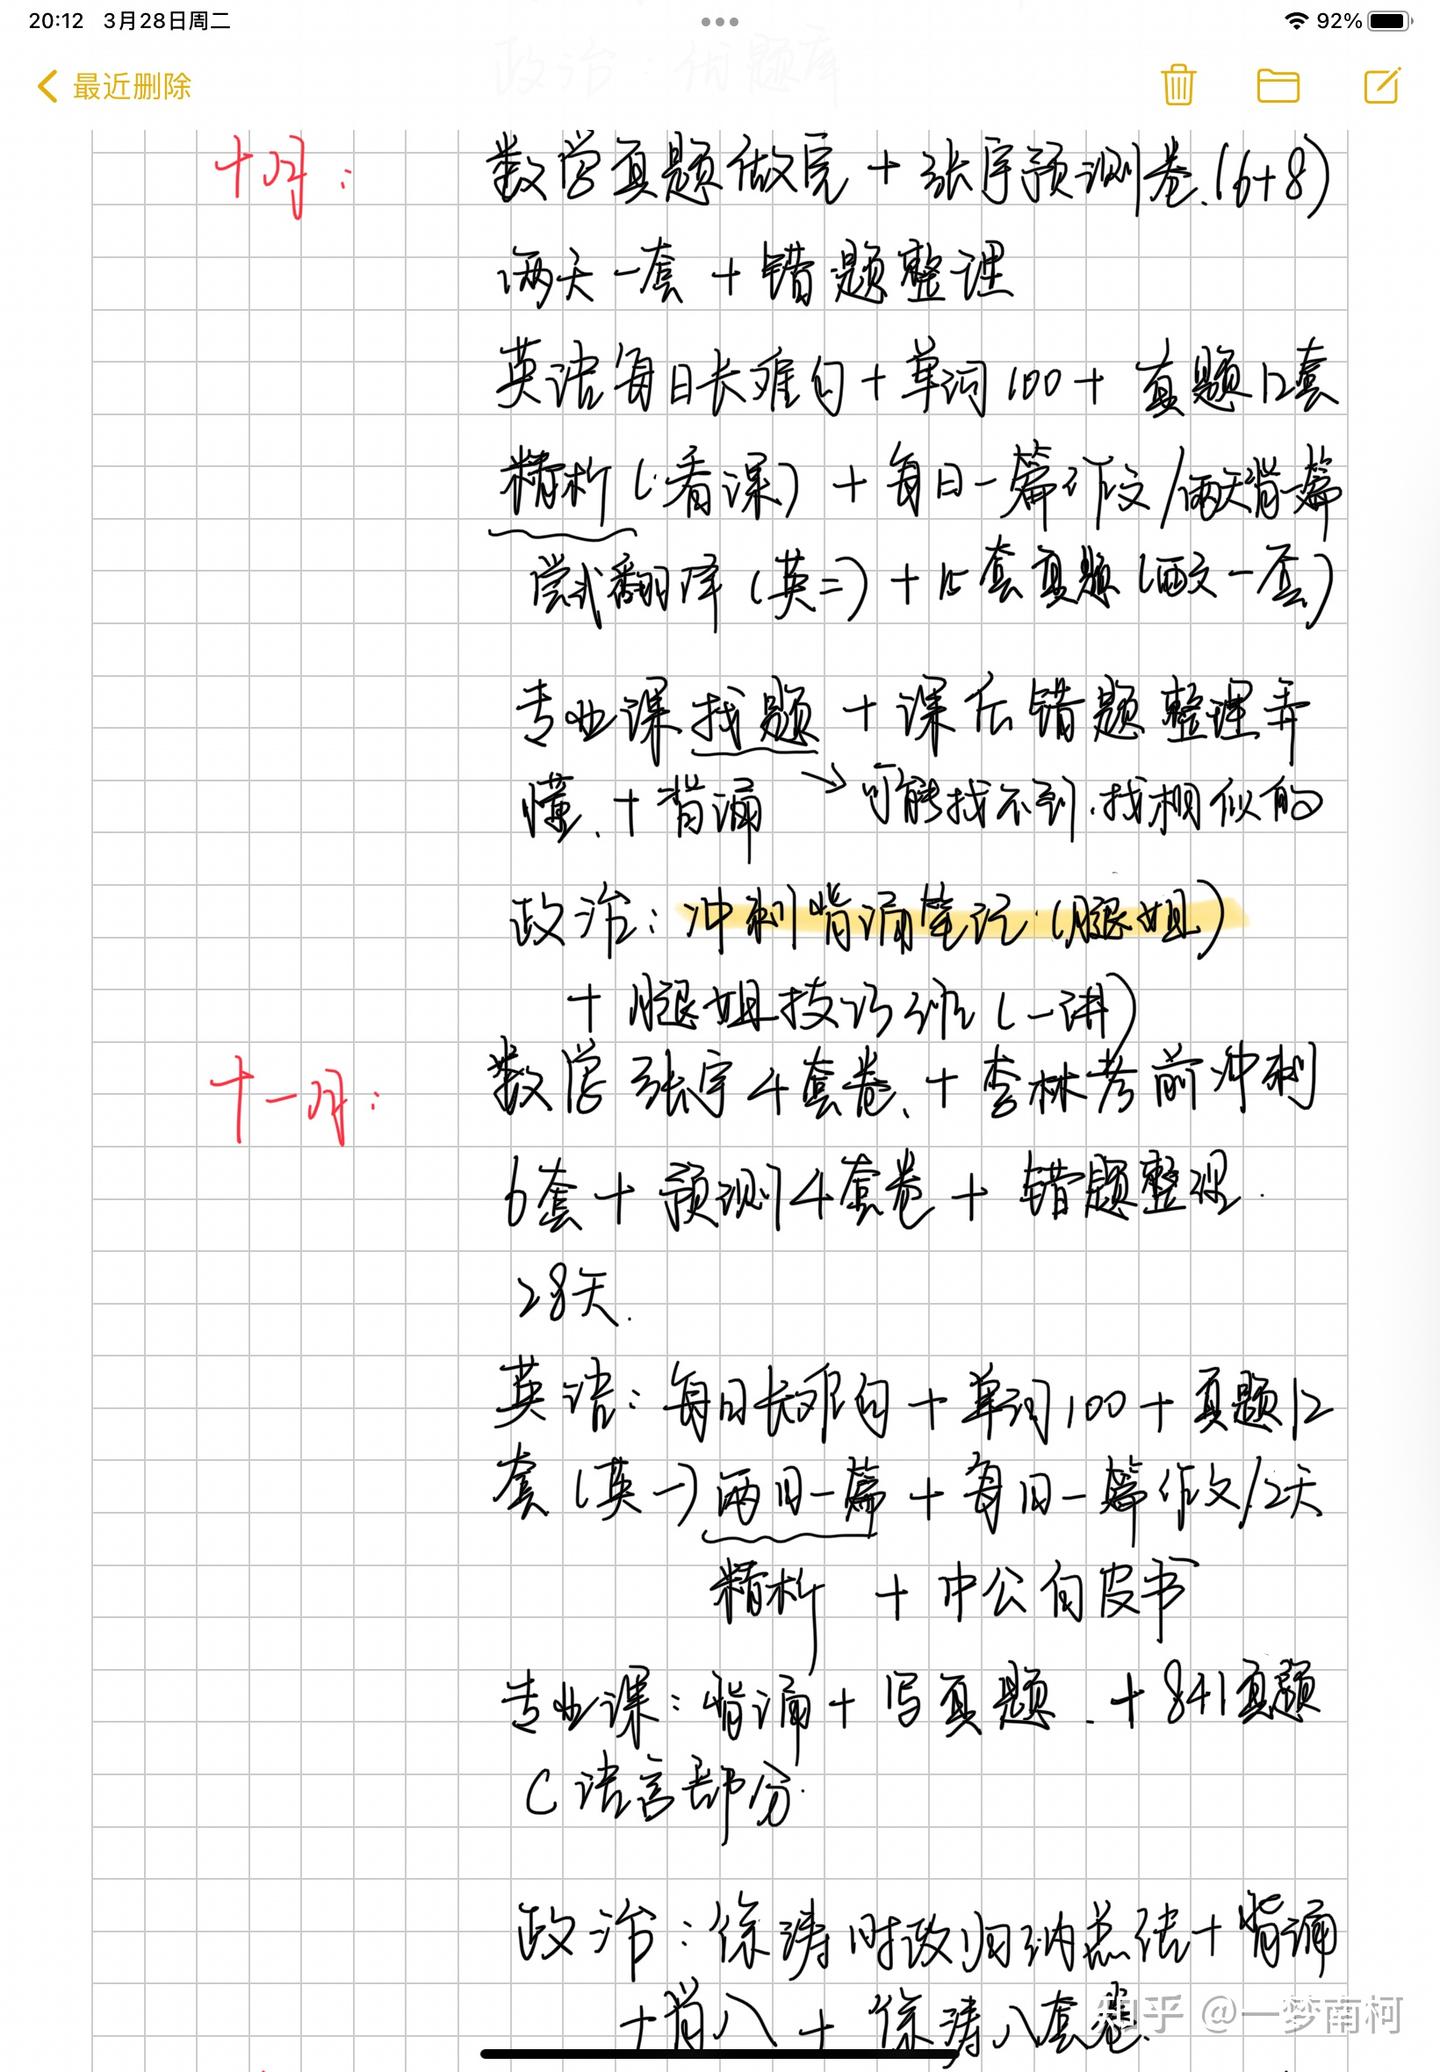 20:12 3月28日周二
92%
政治:优题库
最近删除
十月:
数学真题做完+张宇预测卷(6+8)
两天一套+错题整理
英语每日长难句+单词100+真题12套
精析(看课)+每日一篇作文/两天背一篇
尝试翻译(英二)+15套真题(两天一套)
专业课找题+课后错题整理弄
懂+背诵→可能找不到.找相似的
政治:冲刺背诵笔记(腿姐)
+腿姐技巧班(一讲)
十一月:
数学张宇4套卷+李林考前冲刺
6套+预测4套卷+错题整理.
28天.
英语:每日长难句+单词100+真题12
套(英一)两日一篇+每日一篇作文/2天
精析+中公白皮书
专业课:背诵+写真题.+841真题
C语言部分.
政治:徐涛时政归纳总结+背诵
+肖八+徐涛八套卷.
知乎 @一梦南柯